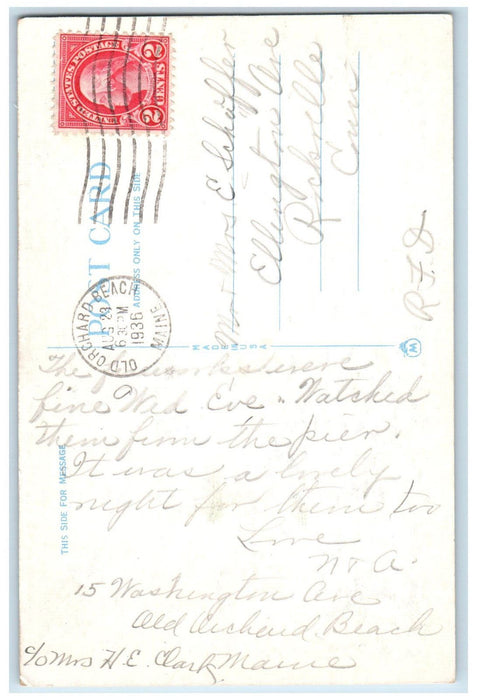 UNITED STATES POSTAGE
2 CENTS 2
POST CARD
ADDRESS ONLY ON THIS SIDE
OLD ORCHARD BEACH
AUG 28
6 30 PM
1936
MAINE
Mr & Mrs E Schaffer
Ellington Ave
Rockville
Conn
R. F. D
MADE IN USA
M
THIS SIDE FOR MESSAGE
The fireworks were
fine Wed Eve. Watched
them from the pier.
It was a lovely
night for them too
Love
N + A.
15 Washington Ave
Old Orchard Beach
c/o Mrs H. E. Clark, Maine